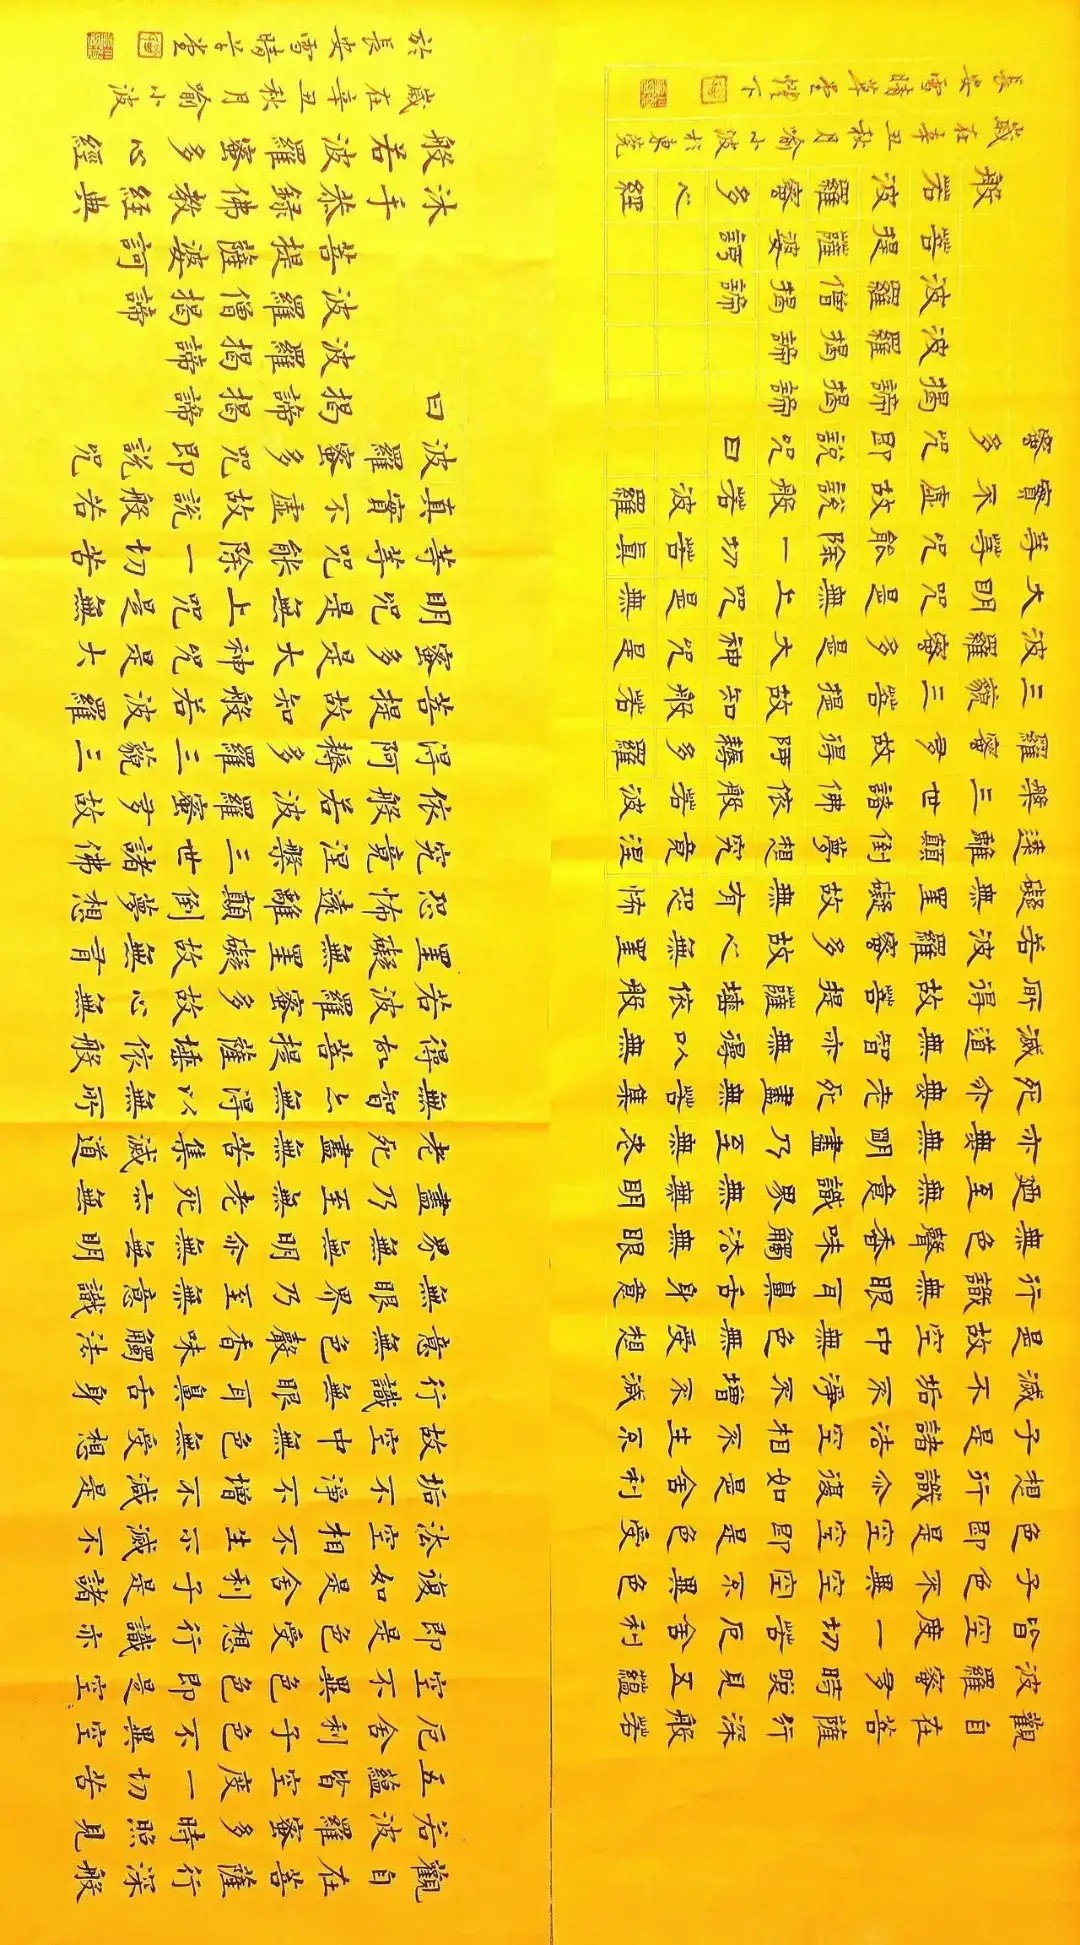 觀自在菩薩行深般若
波羅蜜多時照見五蘊
皆空度一切苦厄舍利
子色不異空空不異色
色即是空空即是色受
想行識亦復如是舍利
子是諸法空相不生不
滅不垢不淨不增不減
是故空中無色無受想
行識無眼耳鼻舌身意
無色聲香味觸法無眼
界乃至無意識界無無明
亦無無明盡乃至無老
死亦無老死盡無苦集
滅道無智亦無得以無
所得故菩提薩埵依般
若波羅蜜多故心無罣
礙無罣礙故無有恐怖
遠離顛倒夢想究竟涅
槃三世諸佛依般若波
羅蜜多故得阿耨多羅
三藐三菩提故知般若
波羅蜜多是大神咒是
大明咒是無上咒是無
等等咒能除一切苦真
實不虛故說般若波羅
蜜多咒即說咒曰
揭諦揭諦
波羅揭諦
波羅僧揭諦
菩提薩婆訶
般若波羅蜜多心經
歲在辛丑秋月喻小波於東莞
長安雪晴草堂燈下
觀自在菩薩行深般
若波羅蜜多時照見
五蘊皆空度一切苦
厄舍利子色不異空
空不異色色即是空
即是色受想行識亦
復如是舍利子是諸
法空相不生不滅不
垢不淨不增不減是
故空中無色無受想
行識無眼耳鼻舌身
意無色聲香味觸法
無眼界乃至無意識
界無無明亦無無明
盡乃至無老死亦無
老死盡無苦集滅道
無智亦無得以無所
得故菩提薩埵依般
若波羅蜜多故心無
罣礙無罣礙故無有
恐怖遠離顛倒夢想
究竟涅槃三世諸佛
依般若波羅蜜多故
得阿耨多羅三藐三
菩提故知般若波羅
蜜多是大神咒是大
明咒是無上咒是無
等等咒能除一切苦
真實不虛故說般若
波羅蜜多咒即說咒
曰
揭諦揭諦
波羅揭諦
波羅僧揭諦
菩提薩婆訶
沐手恭録佛教經典
般若波羅蜜多心經
歲在辛丑秋月喻小波
於長安雪晴草堂